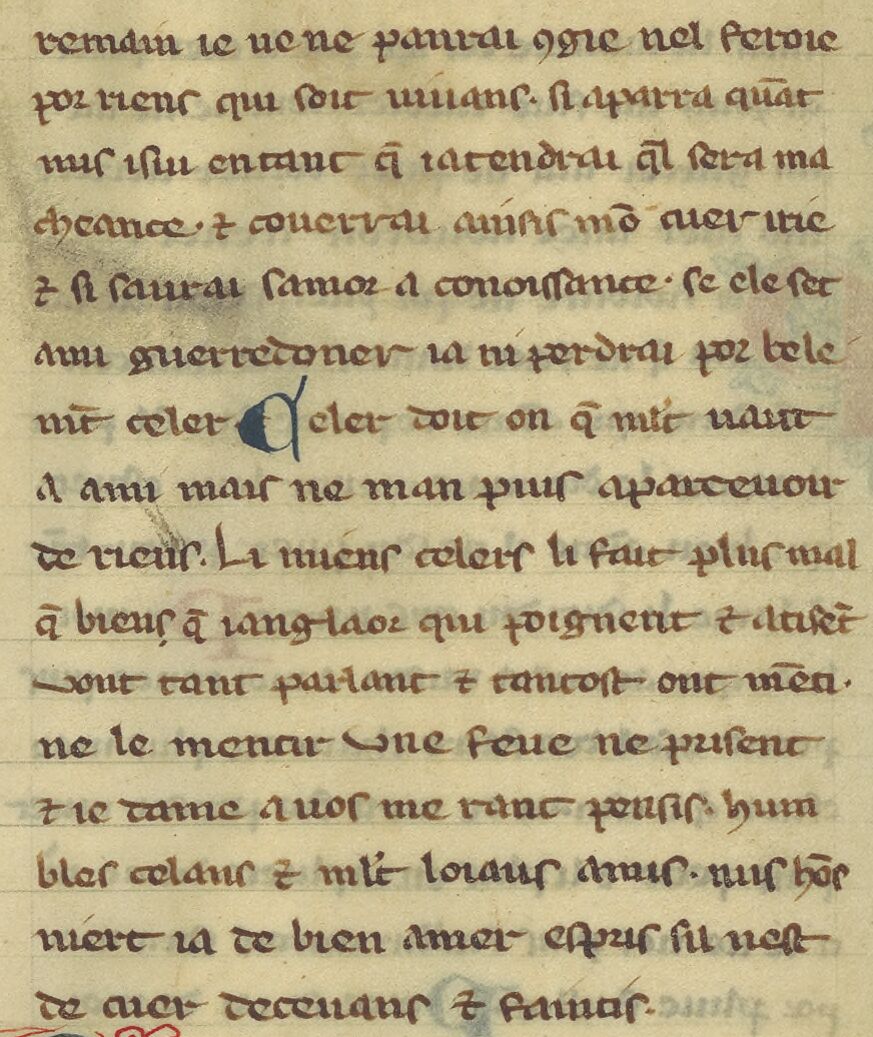 remain ie ue ne partirai ꝯgie nel feroie
por riens qui soit uiuans. si aparra quāt
mis isui en tant q̄ iatendrai q̄l sera ma
cheance. ⁊ couerrai ainsis mō cuer irie
⁊ si saurai samor a conoissance. se ele set
ami guerredoner ia ni perdrai por bele
mt̄ celer Celer doit on q̄ ml't uaut
a ami mais ne man puis aparceuoir
de riens. Li miens celers li fait plus mal
q̄ biens q̄ ianglaor qui poignent ⁊ atisēt
vont tant parlant ⁊ tantost ont mēti.
ne le mentir vne feue ne prisent
⁊ ie dame a uos me rant pensis. hum
bles celans ⁊ ml't loiaus amis. nus hōs
niert ia de bien amer espris sil nest
de cuer deceuans ⁊ faintis.